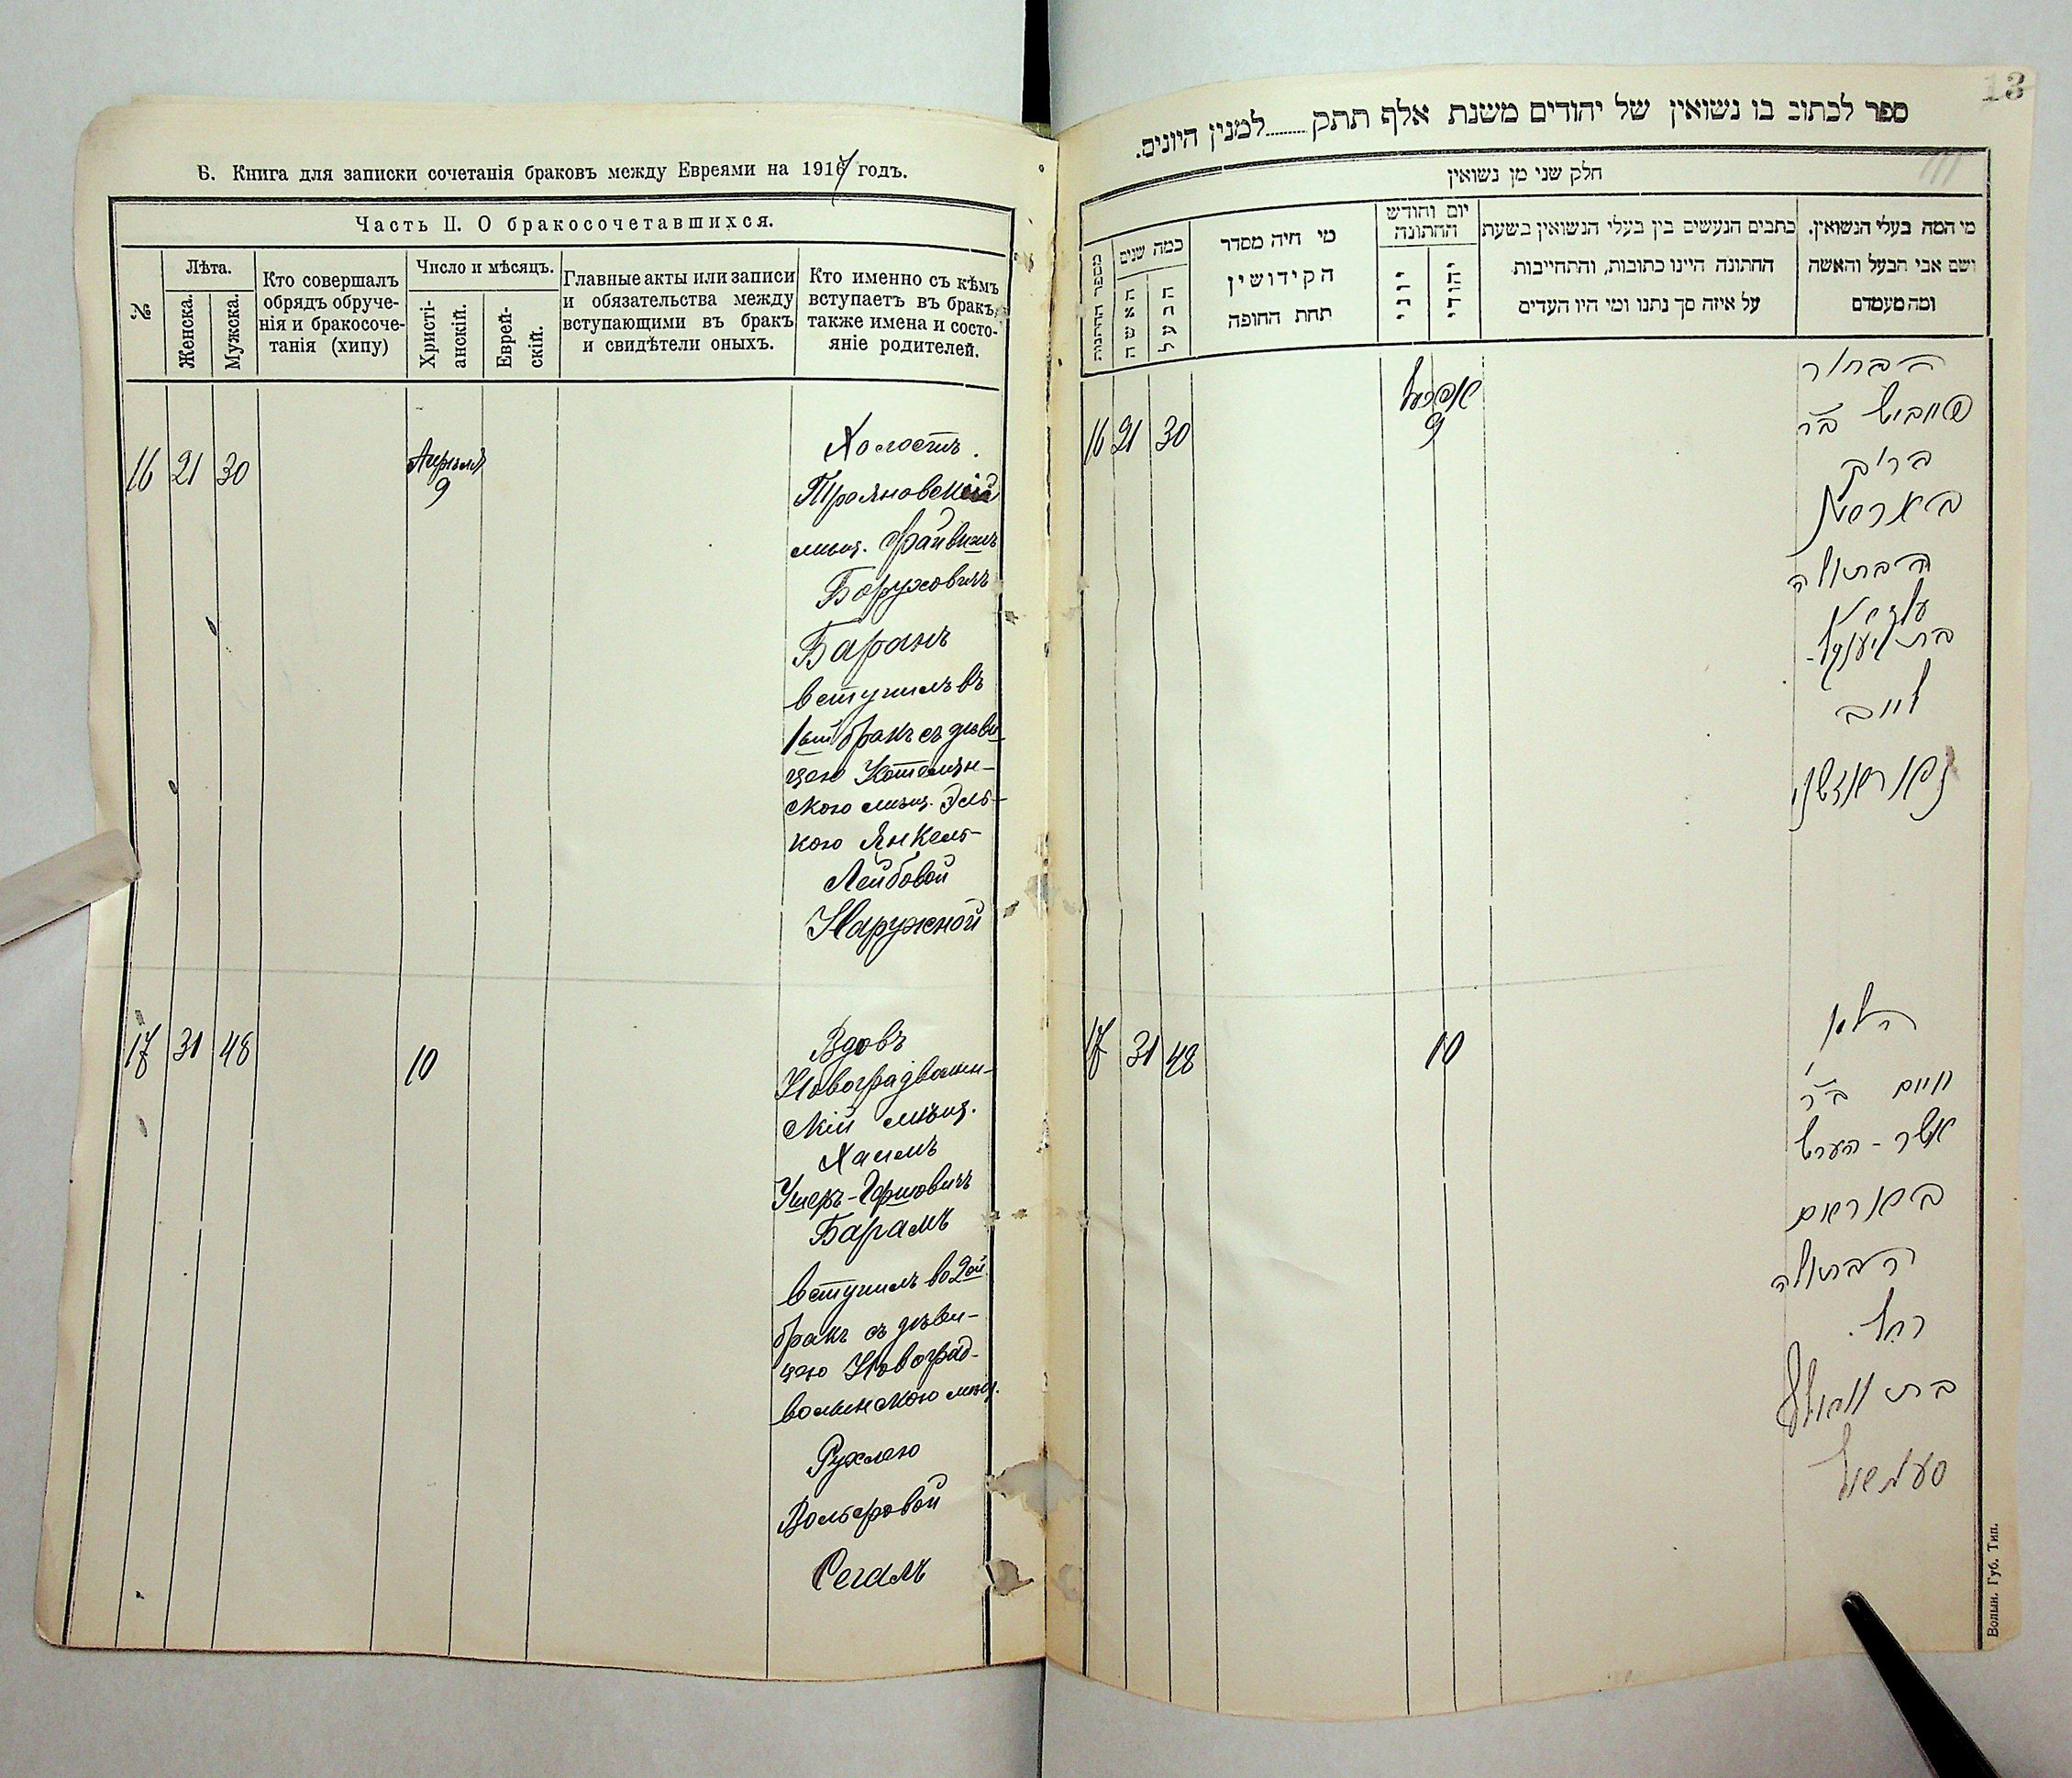 Б. Книга для записки сочетанія браковъ между Евреями на 1917 годъ.
Часть II. О бракосочетавшихся.
№
Лѣта.
Женска.
Мужска.
Кто совершалъ
обрядъ обруче-
нія и бракосоче-
танія (хипу)
Число и мѣсяцъ.
Христі-
анскій.
Еврей-
скій.
Главные акты или записи
и обязательства между
вступающими въ бракъ
и свидѣтели оныхъ.
Кто именно съ кѣмъ
вступаетъ въ бракъ,
также имена и состо-
яніе родителей.
16 21 30
Апрѣля
9
Холостъ.
Трояновскій
мѣщ. Файвишъ
Боруховичъ
Баранъ
вступилъ въ
1ый бракъ съ дѣви
цею Котелян-
скою мѣщ. Эль-
кою Янкель-
Лейбовой
Наружной
17 31 48
10
Вдовъ
Новоградволын-
скій мѣщ.
Хаимъ
Ушеръ-Гершовичъ
Барамъ
вступилъ во 2ой
бракъ съ дѣви-
цею Новоград-
волынскою мѣщ.
Рухлею
Вольфовой
Сегалъ
13
ספר לכתוב בו נשואין של יהודים משנת אלף תתק......למנין היונים.
חלק שני מן נשואין
מספר החתונות
כמה שנים
האשה
הבעל
מי היה מסדר
הקידושין
תחת החופה
יום וחודש
החתונה
יוני
יהודי
כתבים הנעשים בין בעלי הנשואין בשעת
החתונה היינו כתובות, והתחייבות
על איזה סך נתנו ומי היו העדים
מי המה בעלי הנשואין.
ושם אבי הבעל והאשה
ומה מעמדם
16 21 30
אפריל
9
הבחור
פייביש ב״ר
ברוך
באראן
הבתולה
עלקא
בת יענקל-
לייב
נארוזשני
17 31 48
10
חיים ב״ר
אשר - הערש
באראם
הבתולה
רחל.
בת וואולף
סעגאל
Волын. Губ. Тип.